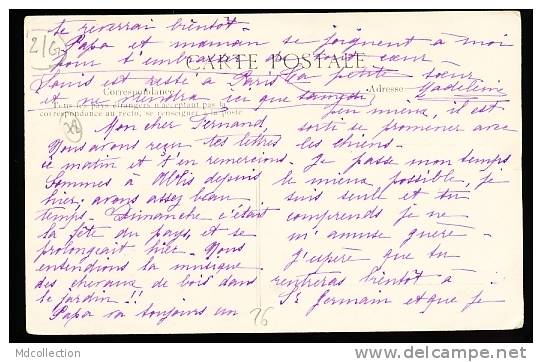 te reverrai bientôt.
Papa et maman se joignent à moi
pour t'embrasser de tout cœur
CARTE POSTALE
Ta petite sœur
Madeleine
Louis est resté à Paris
et ne viendra ici que samedi
Correspondance
Adresse
Tous les pays étrangers n'acceptant pas la
correspondance au recto, se renseigner à la poste
2/G
Mon cher Fernand
Nous avons reçu tes lettres
ce matin et t'en remercions.
Sommes à Ablis depuis
hier; avons assez beau
temps. Dimanche c'était
la fête du pays, et se
prolongeait hier. Nous
entendions la musique
des chevaux de bois dans
le jardin !!
Papa va toujours un
peu mieux, il est
sorti se promener avec
les chiens.
Je passe mon temps
le mieux possible, je
suis seule et tu
comprends je ne
m'amuse guère.
J'espère que tu
rentreras bientôt à
St Germain et que je
26
Mdcollection
http://www.delcampe.net